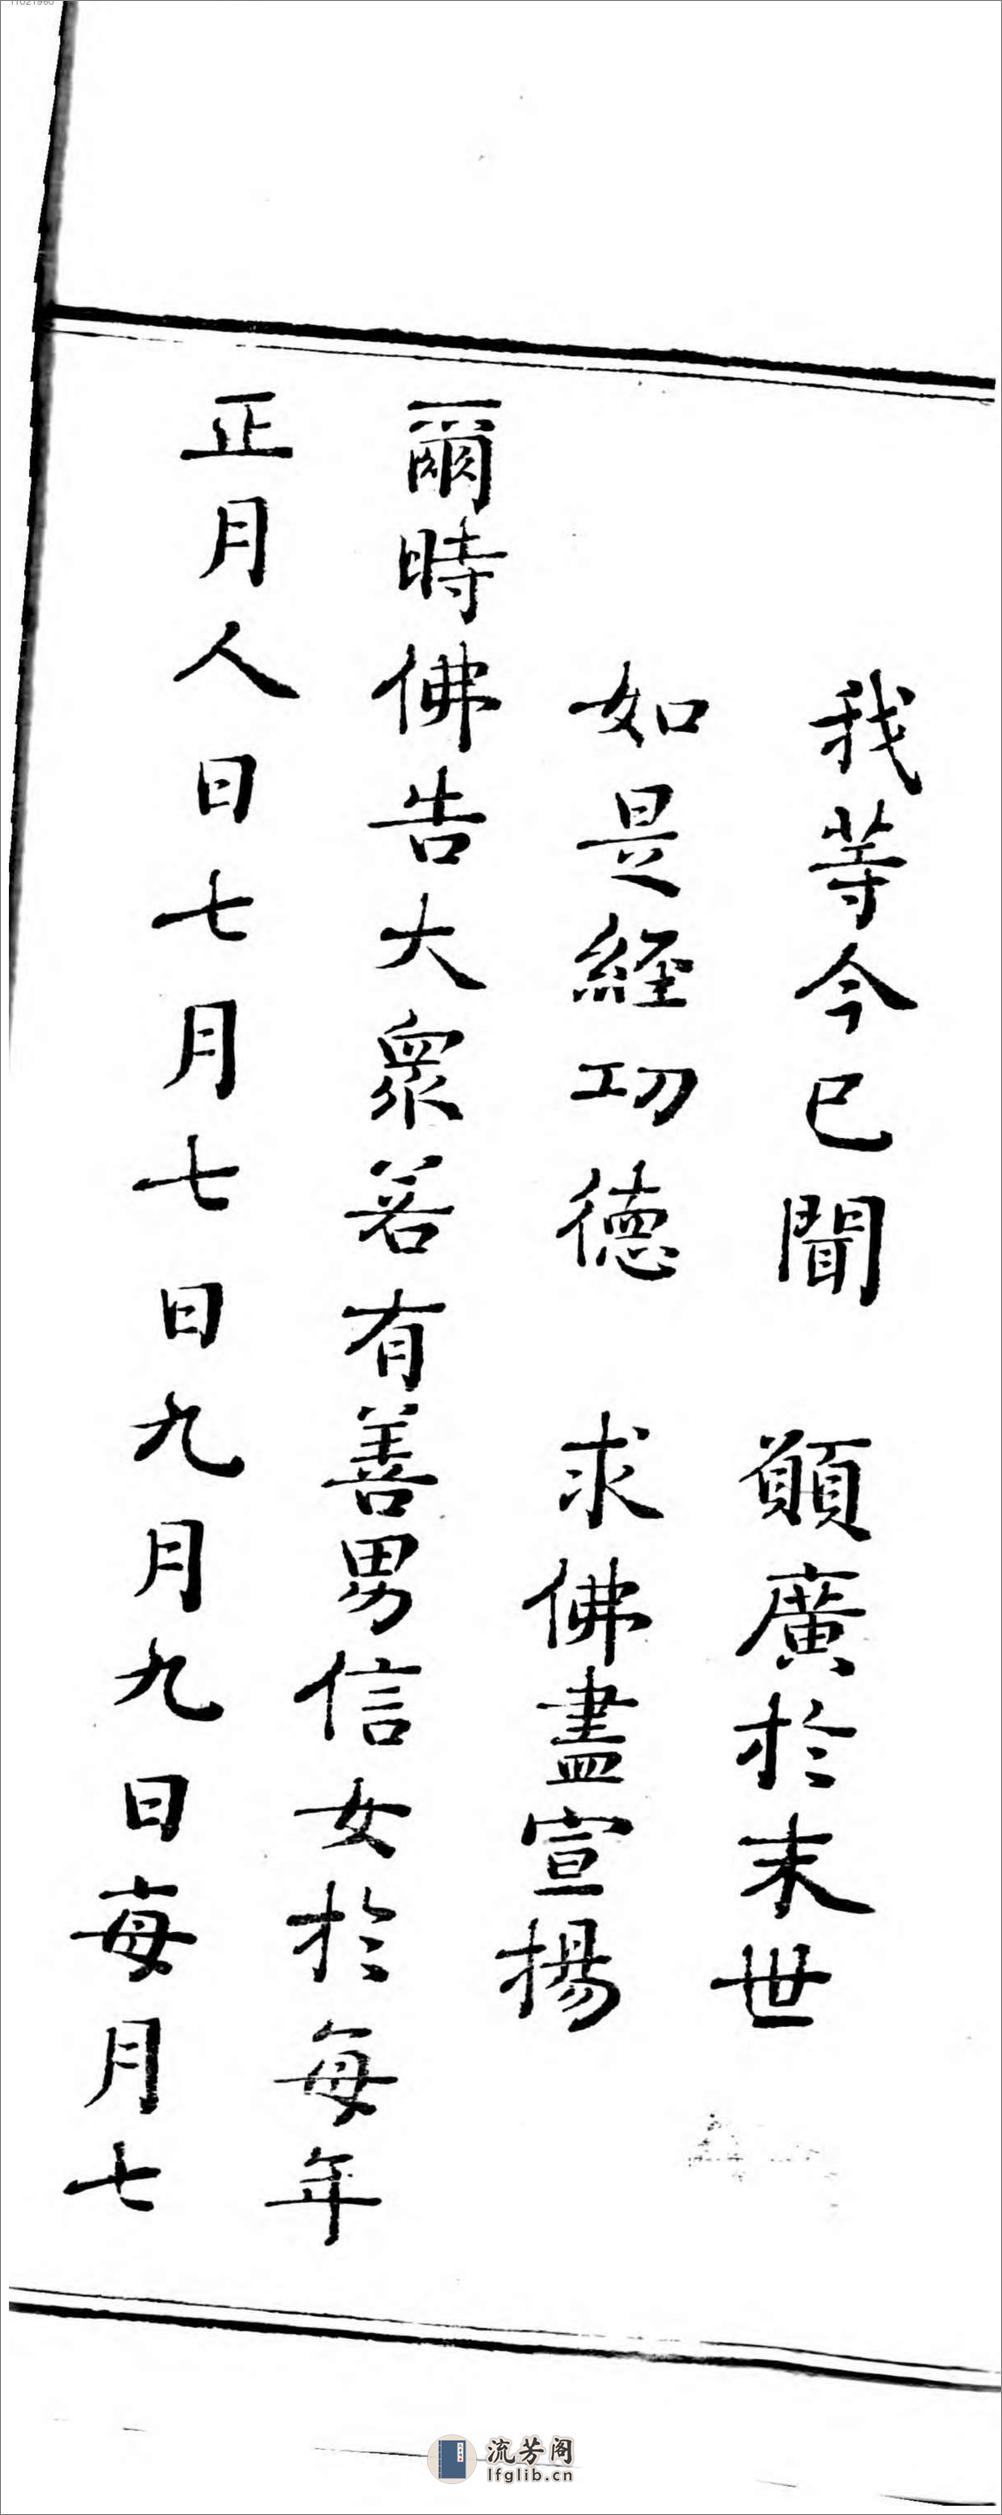 我等今已聞　願廣於末世
如是經功德　求佛盡宣揚
爾時佛告大衆若有善男信女於每年
正月人日七月七日九月九日每月七
流芳阁
lfglib.cn